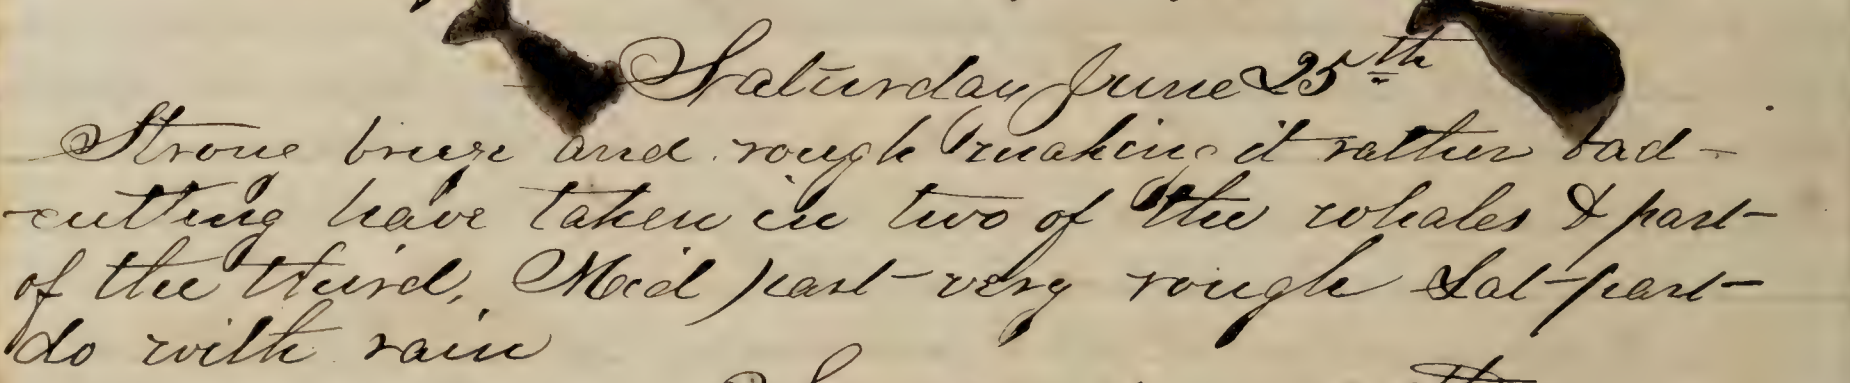 Saturday June 25th
Strong breeze and rough making it rather bad
cutting have taken in two of the whales & part
of the third, Mid part very rough Lat part
do with rain